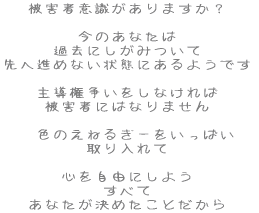 被害者意識がありますか？
今のあなたは
過去にしがみついて
先へ進めない状態にあるようです
主導権争いをしなければ
被害者にはなりません
色のえねるぎーをいっぱい
取り入れて
心を自由にしよう
すべて
あなたが決めたことだから